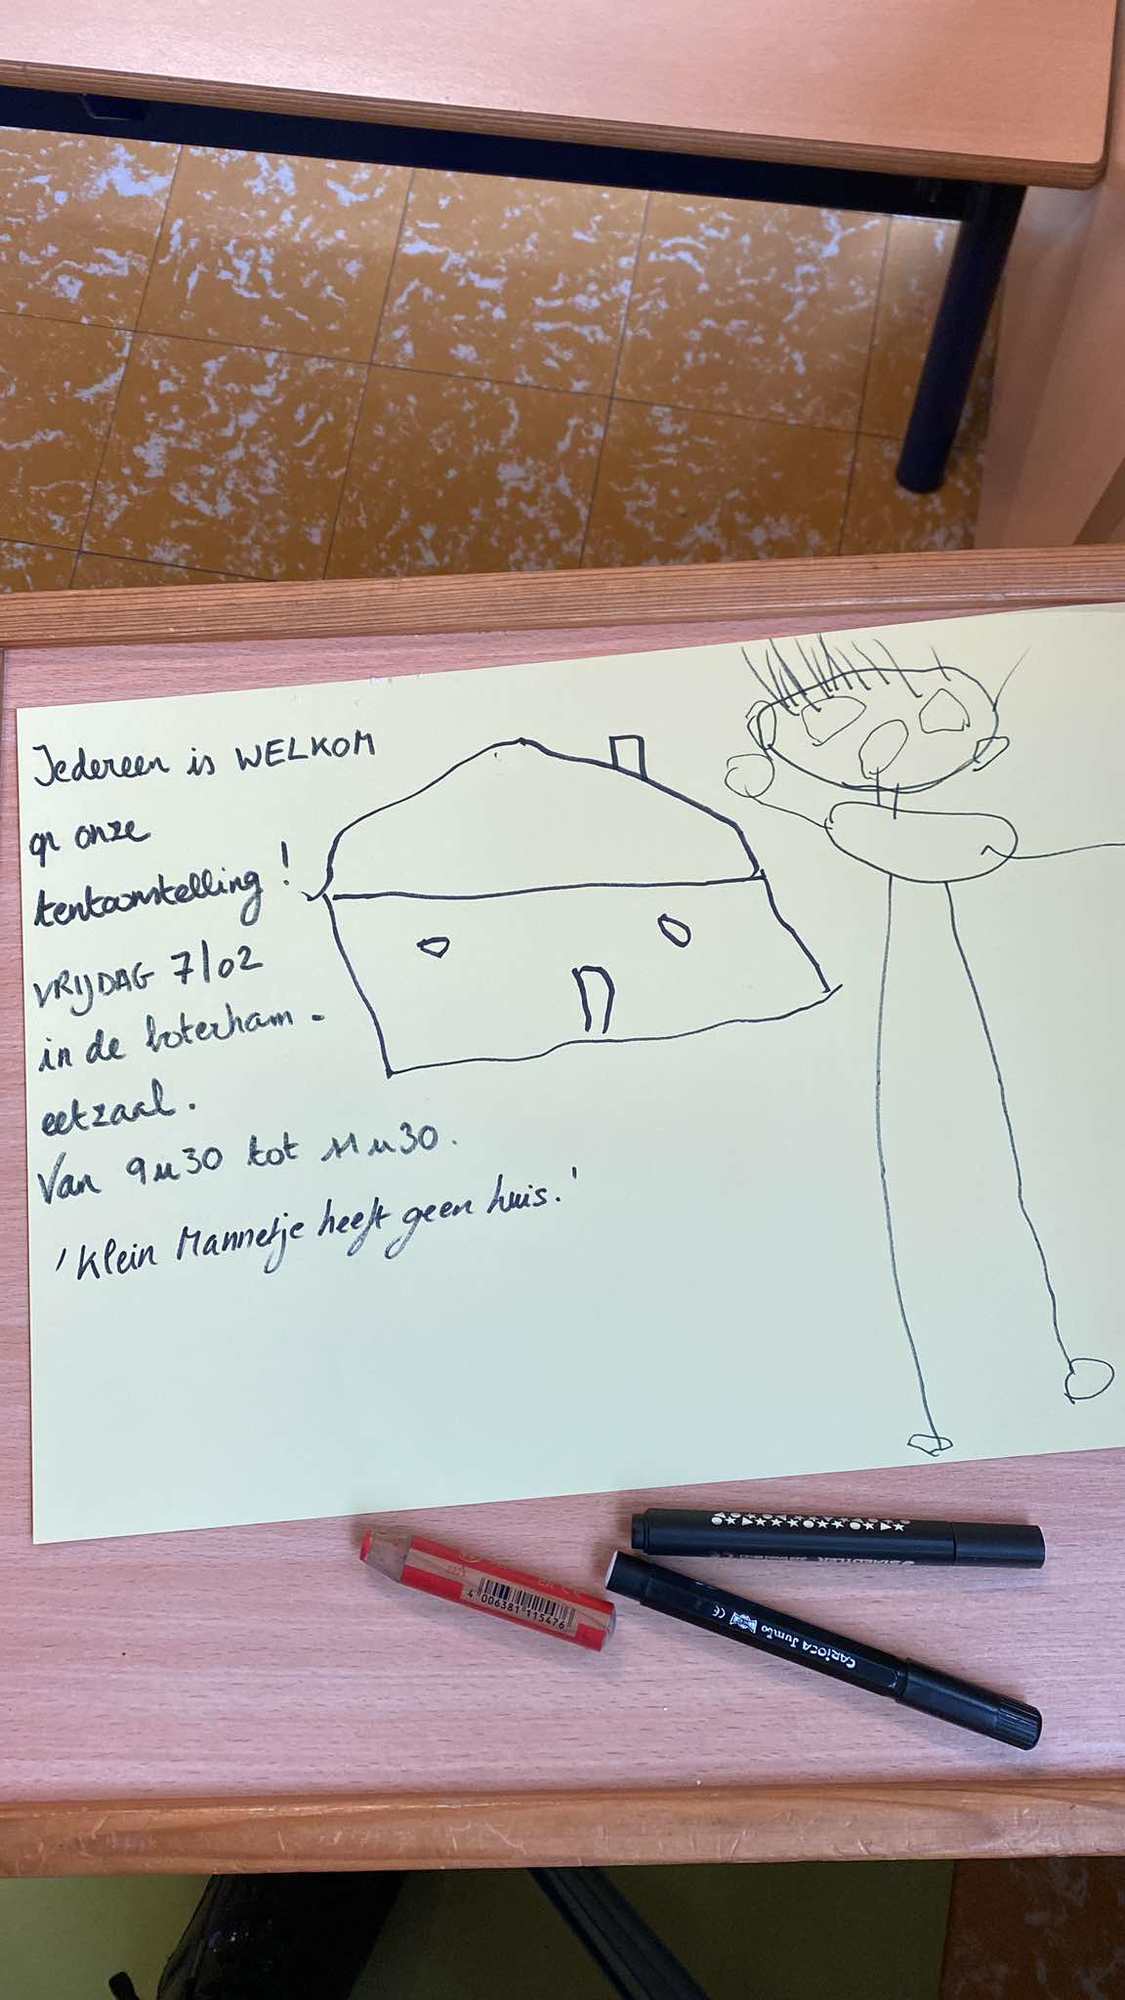 Iedereen is WELKOM
op onze
tentoonstelling!
VRIJDAG 7/02
in de boterham-
eetzaal.
Van 9u30 tot 11u30.
'Klein Mannetje heeft geen huis.'
4 006381 115476
CARIOCA Jumbo CE